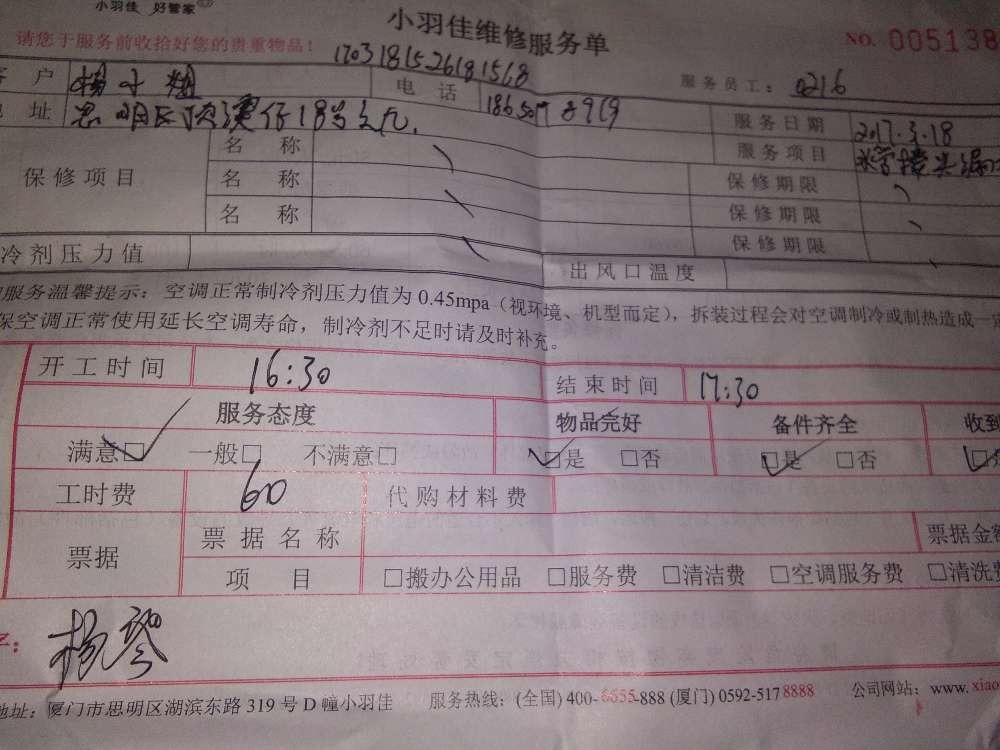 小羽佳 好管家
小羽佳维修服务单
请您于服务前收拾好您的贵重物品！
NO. 005138
1703181526181568
户 杨小姐 电 话 服务员工： 0216
址 思明区顶澳仔18号之九 服务日期 2017.3.18
服务项目 水管接头漏
保修项目 名 称 保修期限
名 称 保修期限
名 称 保修期限
冷剂压力值 出风口温度
服务温馨提示：空调正常制冷剂压力值为 0.45mpa（视环境、机型而定），拆装过程会对空调制冷或制热造成一
保空调正常使用延长空调寿命，制冷剂不足时请及时补充。
开工时间 16:30 结束时间 17:30
服务态度 物品完好 备件齐全 收到
满意☑ 一般□ 不满意□ ☑是 □否 ☑是 □否
工时费 60 代购材料费
票据 票据名称 票据金额
项 目 □搬办公用品 □服务费 □清洁费 □空调服务费 □清洗费
杨琴
地址：厦门市思明区湖滨东路 319 号 D 幢小羽佳 服务热线：(全国) 400-6555-888 (厦门) 0592-517 8888 公司网站：www. xiao